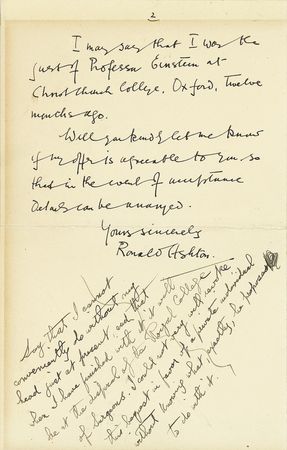 2
I may say that I was the
guest of Professor Einstein at
Christ Church College, Oxford, twelve
months ago.
Will you kindly let me know
if my offer is agreeable to you so
that in the event of acceptance
details can be arranged.
Yours sincerely
Ronald Ashton.
Say that I cannot
conveniently do without my
head just at present, and that
when I have finished with it it will
be at the disposal of the Royal College
of Surgeons. I could not very well revoke
this bequest in favor of a private individual
without knowing what exactly he proposes
to do with it.